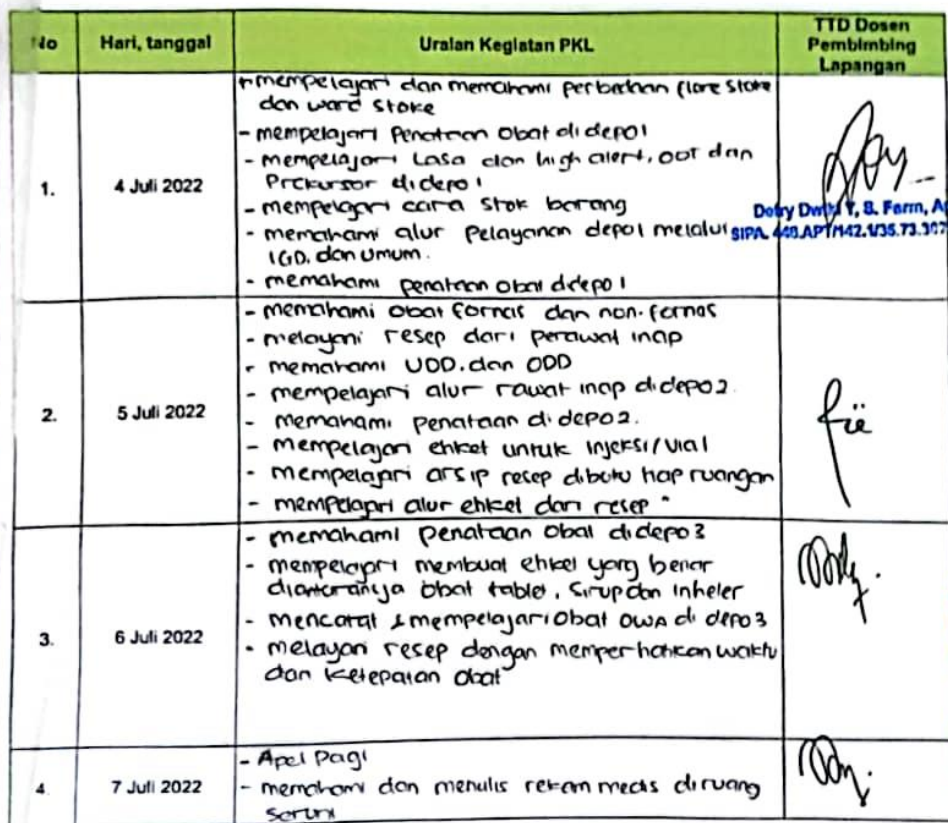 No
Hari, tanggal
Uraian Kegiatan PKL
TTD Dosen
Pembimbing
Lapangan
1.
4 Juli 2022
- mempelajari dan memahami perbedaan flore stoke
dan ward stoke
- mempelajari Penataan Obat di depo 1
- mempelajari Lasa dan high alert, OOT dan
Prekursor di depo 1
- mempelajari cara Stok barang
- memahami alur Pelayanan depo1 melalui
IGD, dan umum.
- memahami penataan obat didepo 1
SIPA.
2.
5 Juli 2022
- memahami obat fornas dan non-fornas
- melayani resep dari perawat inap
- memahami UDD. dan ODD
- mempelajari alur rawat inap didepo 2.
- memahami penataan di depo 2.
- mempelajari etiket untuk injeksi/vial
- mempelajari arsip resep dibutu hap ruangan
- mempelajari alur etiket dan resep "
3.
6 Juli 2022
- memahami penataan Obat didepo 3
- mempelajari membuat etiket yang benar
diantaranya Obat tablet, Sirup dan Inheler
- mencatat & mempelajari Obat OWA di depo 3
- melayani resep dengan memperhatikan waktu
dan Ketepatan Obat
4.
7 Juli 2022
- Apel Pagi
- memahami dan menulis rekam medis diruang
Seruni